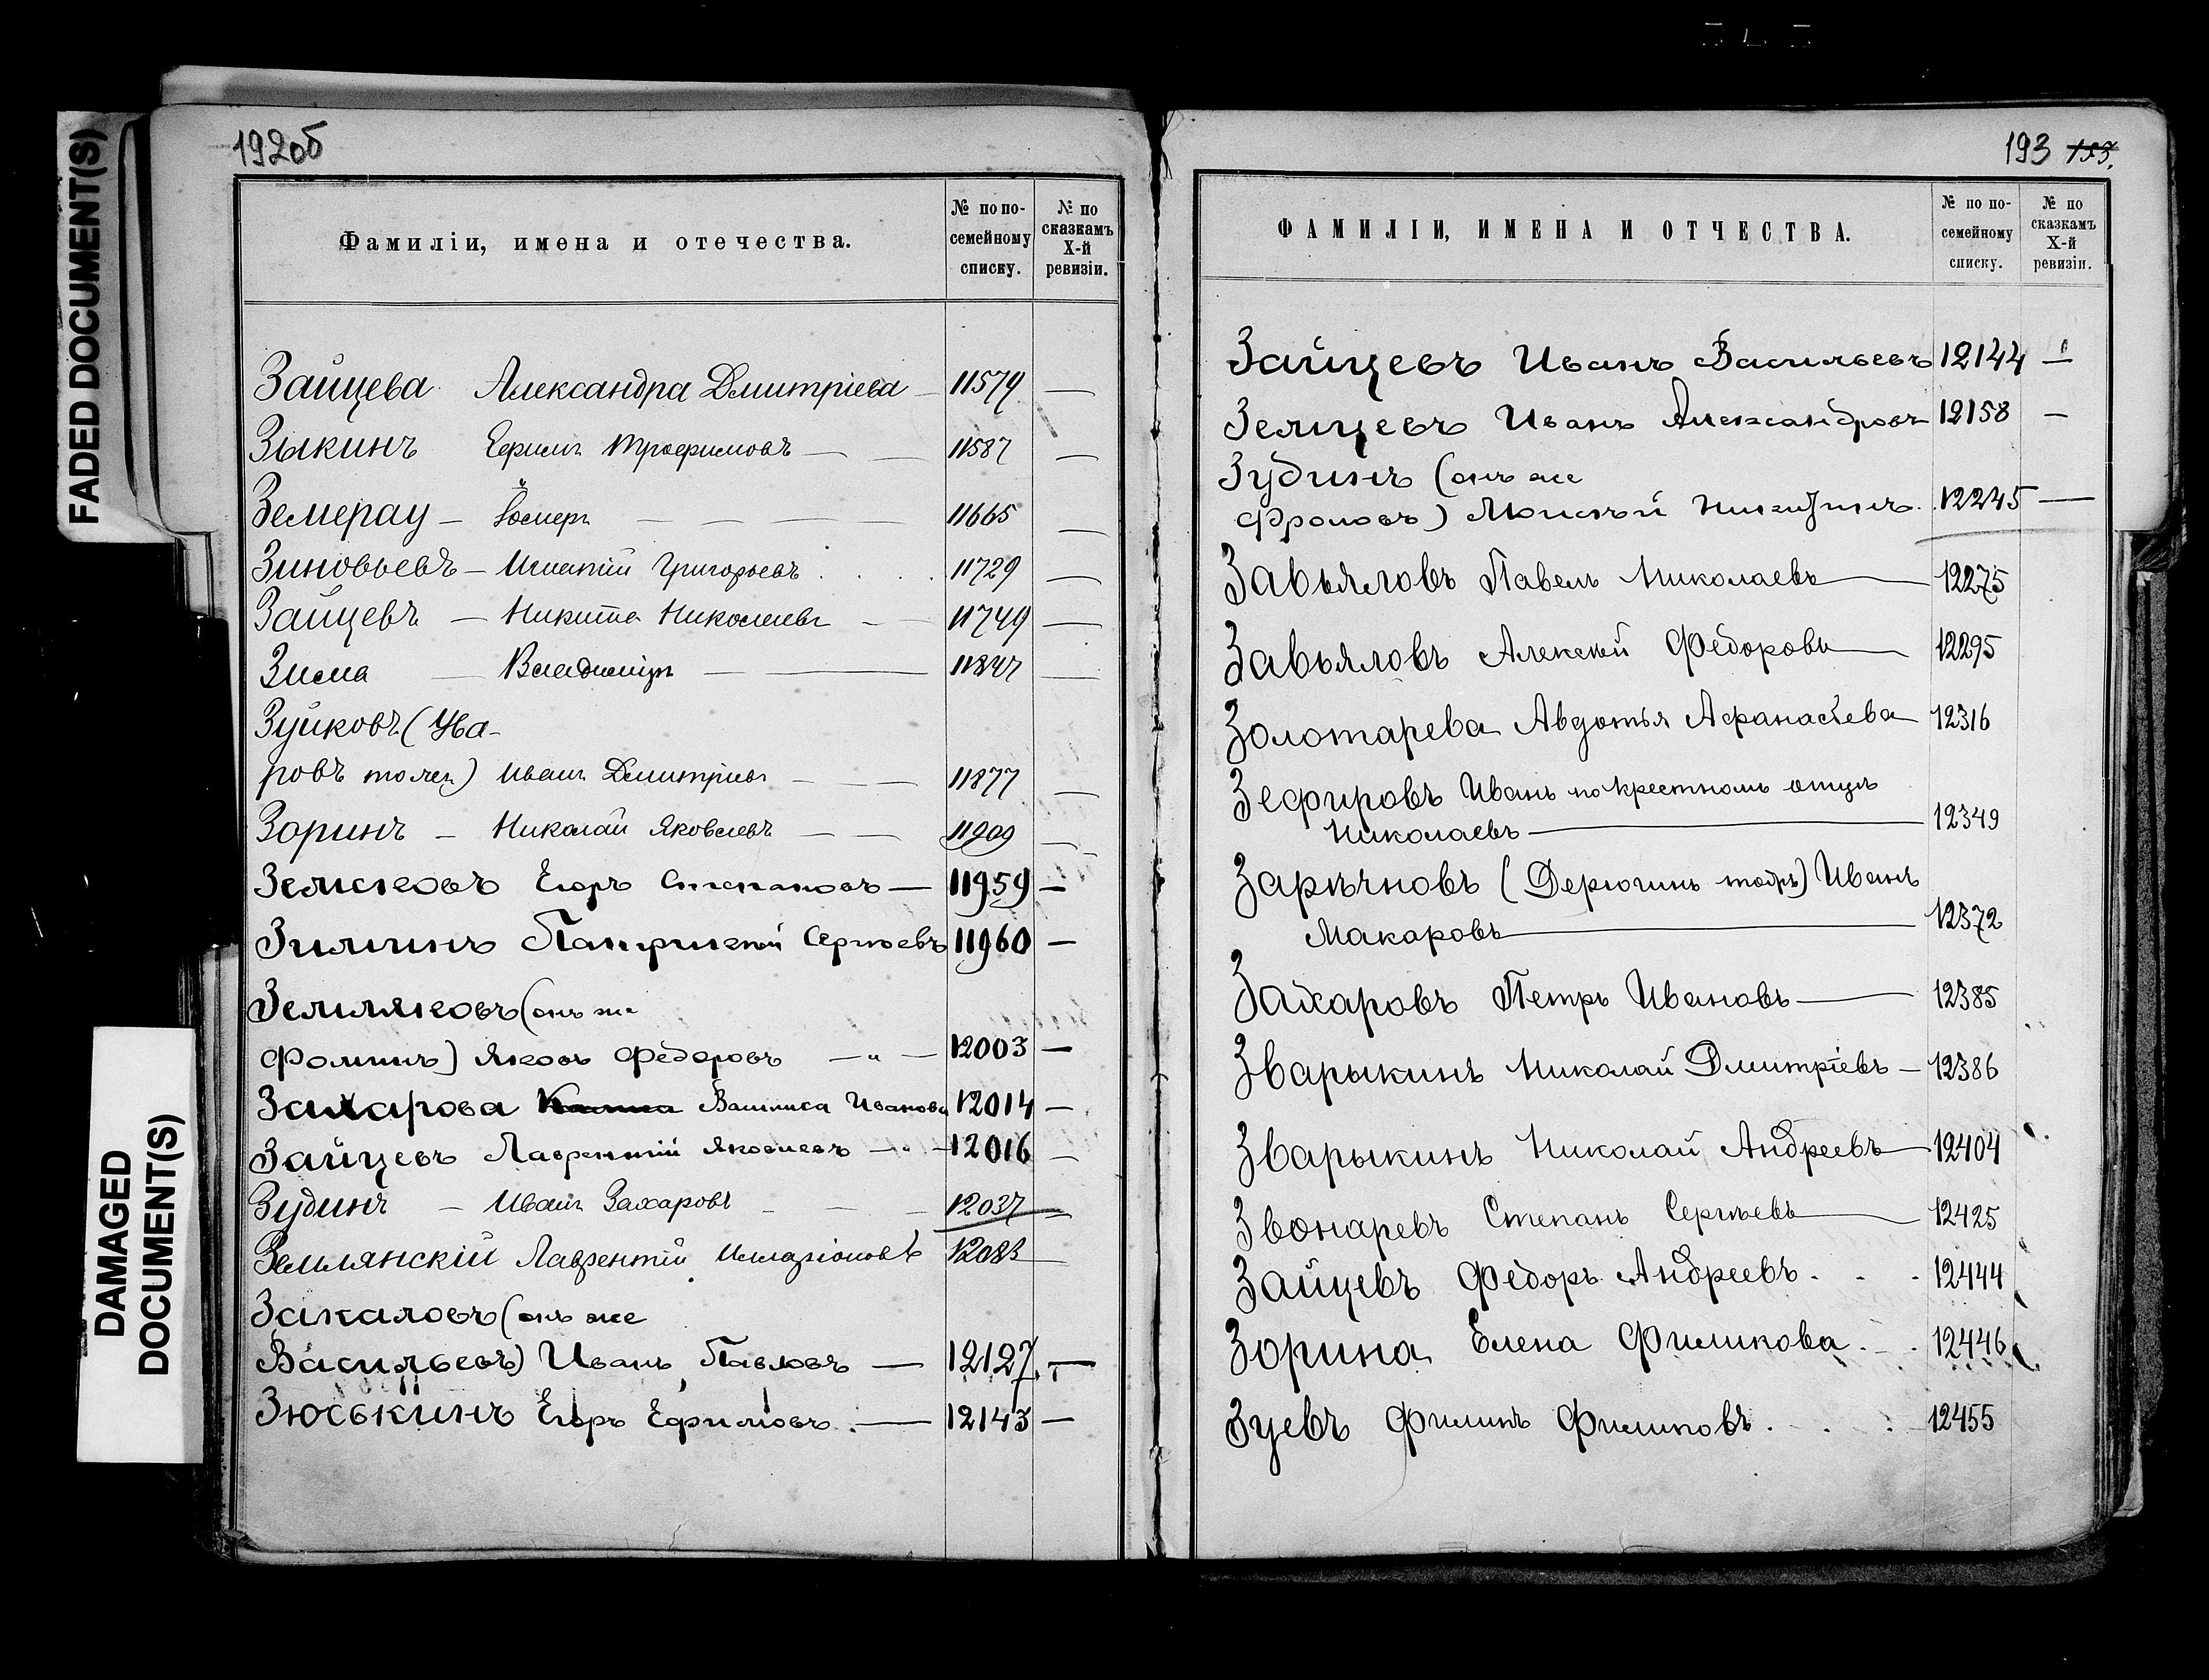 FADED DOCUMENT(S)
DAMAGED
DOCUMENT(S)
192об
Фамиліи, имена и отечества.
№ по по-
семейному
списку.
№ по
сказкамъ
X-й
ревизіи.
Зайцева Александра Дмитріева — 11579 —
Зыкинъ Ефимъ Трофимовъ — — 11587 —
Земерау — — — — 11665 —
Зиновьевъ — Игнатій Григорьевъ . . . . 11729 —
Зайцевъ — Никита Николаевъ — — 11749 —
— Владиміръ — — 11847 —
Зуйковъ (Ува-
ровъ тожъ) Иванъ Дмитріевъ — — 11877 —
Зоринъ — Николай Яковлевъ — — 11909 —
Земсковъ Егоръ Степановъ — 11959 —
Зиминъ Патрикей Сергѣевъ 11960 —
Земляковъ (онъ же
Фоминъ) Яковъ Федоровъ — „ — 12003 —
Захарова Василиса Иванова 12014 —
Зайцевъ Лаврентій Яковлевъ — „ — 12016 —
Зудинъ — Иванъ Захаровъ — — — 12037 —
Землянскій Лаврентій Илларіоновъ 12083 —
Закаловъ (онъ же
Васильевъ) Иванъ Павловъ — 12127 —
Зюськинъ Егоръ Ефимовъ . — 12143 —
193 183.
ФАМИЛІИ, ИМЕНА И ОТЧЕСТВА.
№ по по-
семейному
списку.
№ по
сказкамъ
X-й
ревизіи.
Зайцевъ Иванъ Васильевъ 12144 —
Земцевъ Иванъ Александровъ 12158 —
Зудинъ (онъ же
Фроловъ) Моисей Никитинъ . . 12245 —
Завьяловъ Павелъ Николаевъ — 12275
Завьяловъ Алексѣй Федоровъ — 12295
Золотарева Авдотья Афанасьева — 12316
Зефировъ Иванъ по крестному отцу
Николаевъ — 12349
Зарѣчновъ (Дерюгинъ тожъ) Иванъ
Макаровъ — 12372
Захаровъ Петръ Ивановъ — 12385
Зварыкинъ Николай Дмитріевъ — 12386
Зварыкинъ Николай Андреевъ — 12404
Звонаревъ Степанъ Сергѣевъ — 12425
Зайцевъ Федоръ Андреевъ . . . 12444
Зорина Елена Филипова . — . 12446
Зуевъ Филипъ Филиповъ . . . 12455